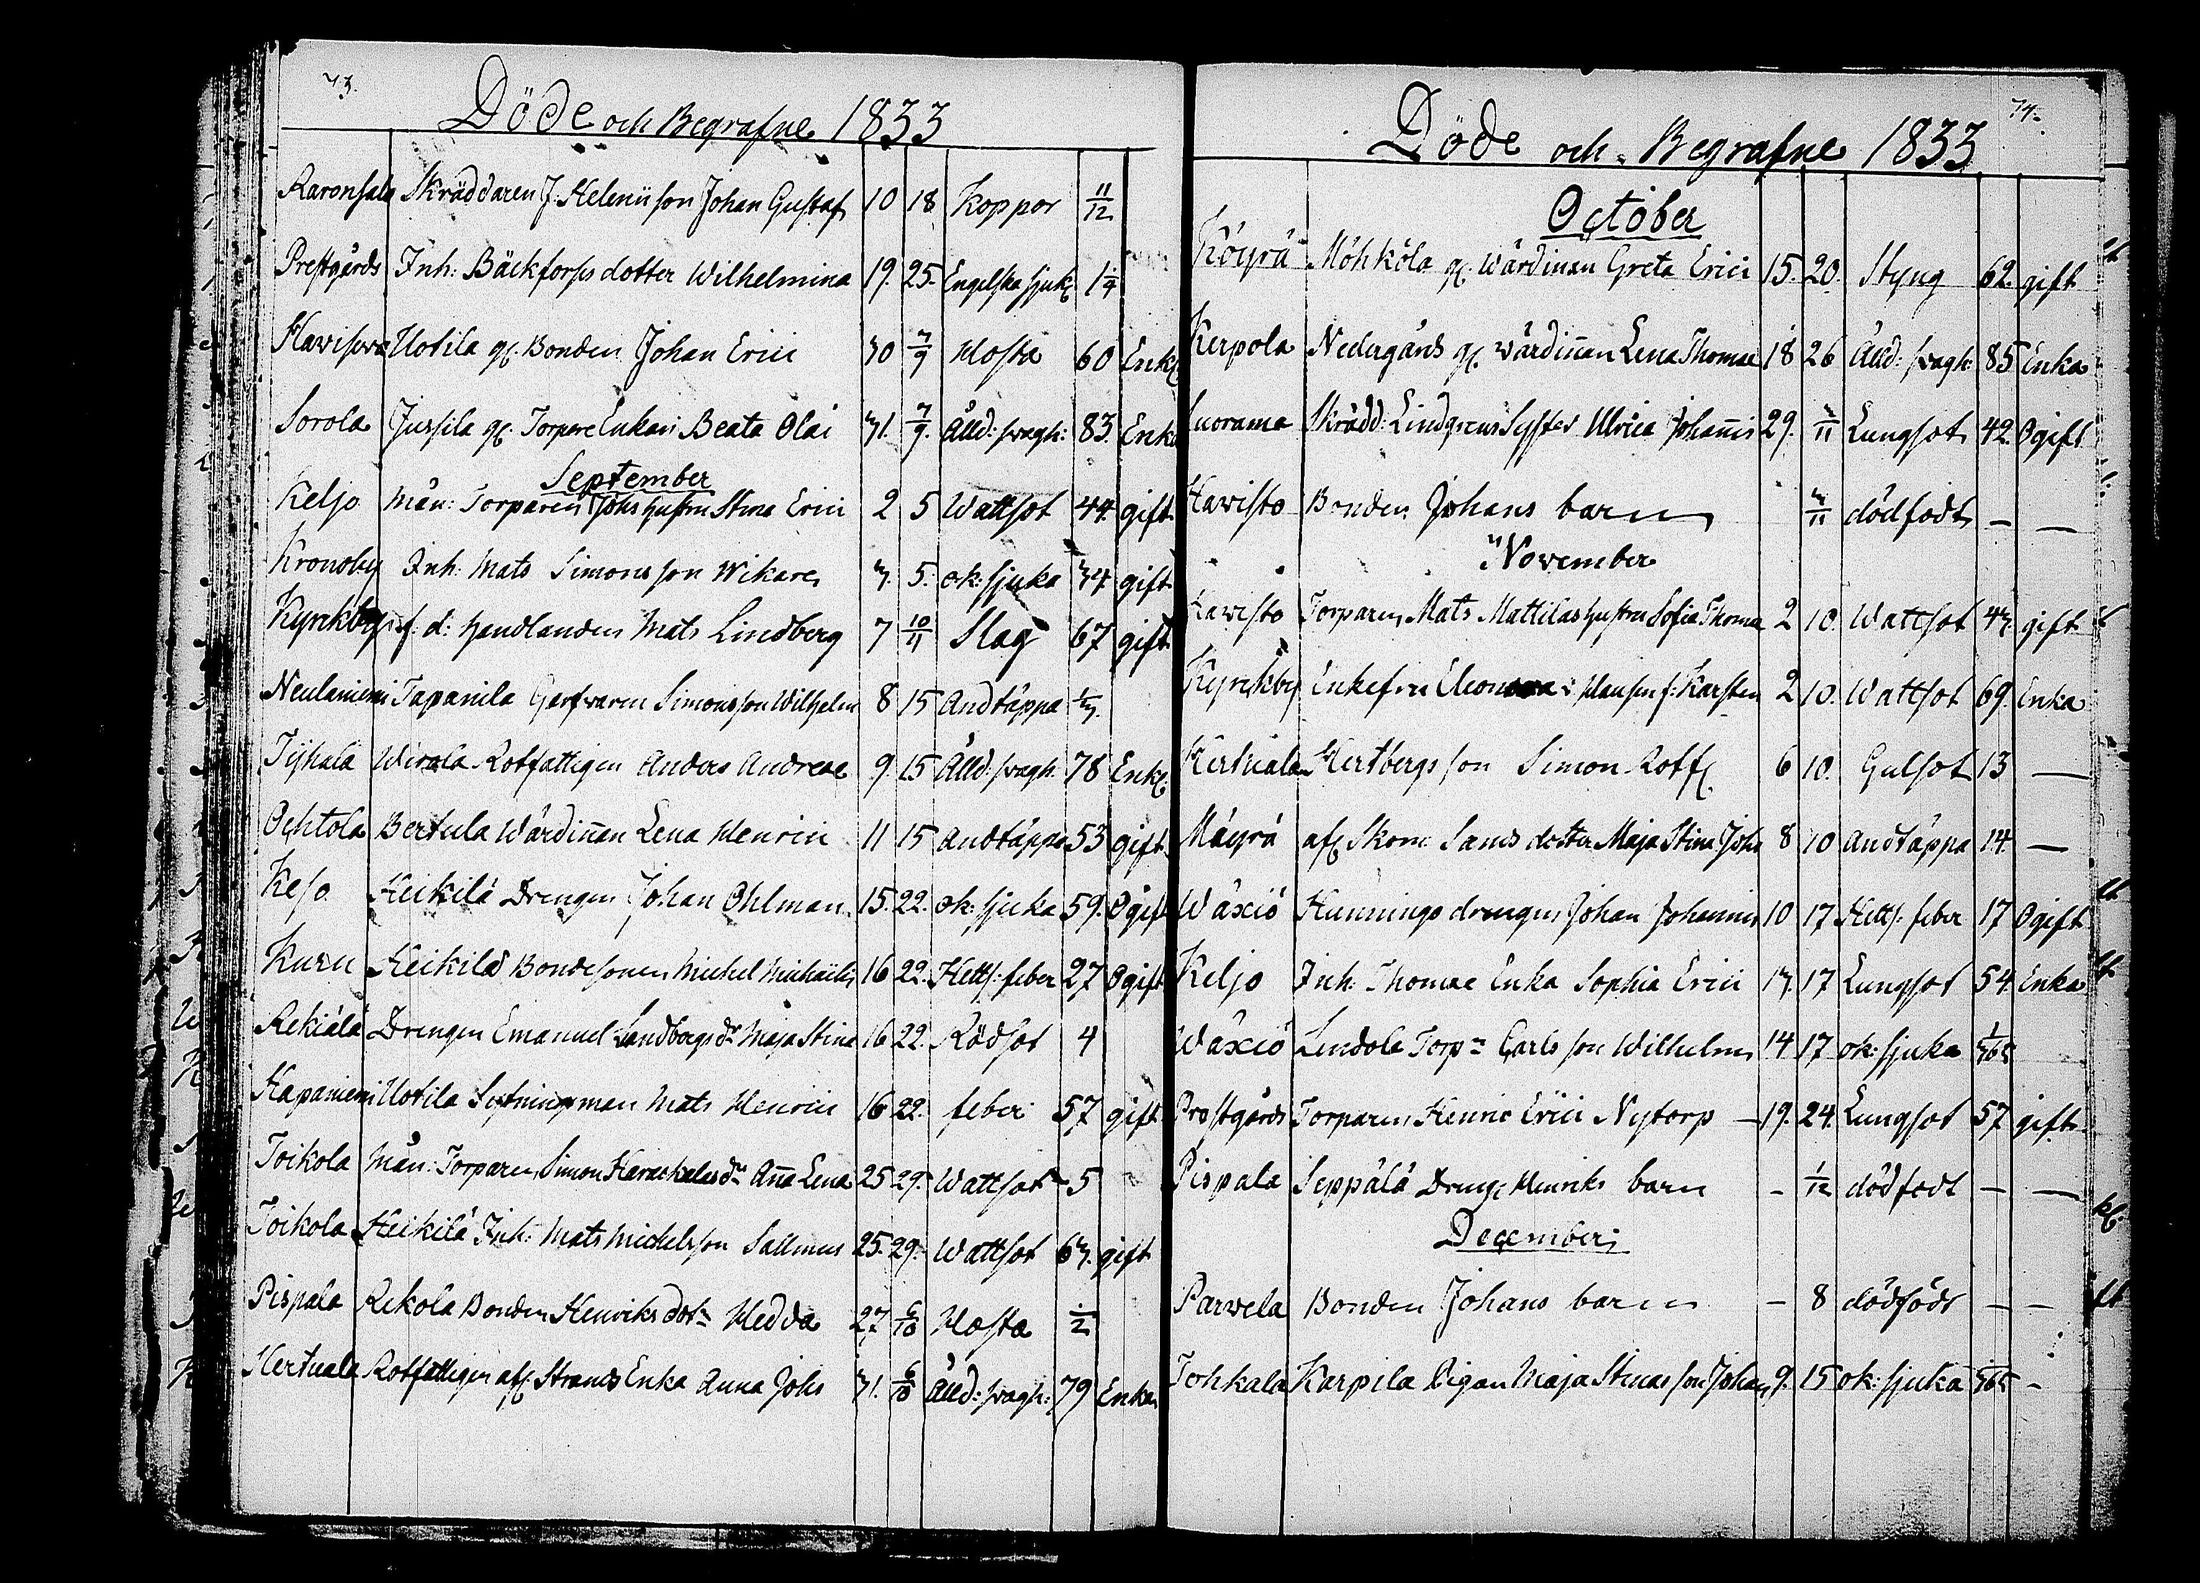 73.
Döde och Begrafne 1833
Aaronsala Skräddaren J. Helenii son Johan Gustaf 10 18 Koppor 11/12
Prestgårds Inh: Bäckforss dotter Wilhelmina 19. 25. Engelska sjuk. 1 1/4
Uotila gl. Bonden Johan Erici 30 7/9 Hosta 60 Enkl
Sorola Jussila gl. Torpare Enkan Beata Olai 31. 7/9. Ålld: svagh: 83. Enka
September
Keljo Mån: Torparen Johs hustru Stina Erici 2 5 Wattsot 44. gift
Kronoby Inh: Mats Simons son Wikare 3. 5. ok: sjuka 34 gift
Kyrckby f. d: Handlanden Mats Lindberg 7 10/11 Slag 67 gift
Neulaniemi Tapanila Garfvaren Simons son Wilhelm 8 15 Andtäppa
Tijhala Wirala Rotfattigen Anders Andreae 9. 15 Ålld: svagh: 78 Enkl.
Ochtola Bertula Wärdinnan Lena Henrici 11 15 Andtäppa 53 gift
Keso Heikilä Drengen Johan Ohlman. 15. 22. ok: sjuka 59. Ogift
Kuru Heikilä Bondesonen Michel Michaelis 16 22. Hetts: feber 27 Ogift
Rekiälä Drengen Emanuel Sandbergs dr Maja Stina 16 22. Rödsot 4
Hapaniemi Uotila Sytningsman Mats Henrici 16 22. feber 57 gift
Toikola Mån: Torparen Simon dr Anna Lena 25 29. Wattsot 5
Toikola Heikilä Inh: Mats Michelsson Sallmus 25. 29. Wattsot 63. gift
Pispala Rekola Bonden Henriks dotr Hedda 27 6/10 Hosta
Hertuala Rotfattigen afl. Strands Enka Anna Johs 31. 6/10 Ålld: svagh: 79 Enka
74.
Döde och Begrafne 1833
October
Köyrä Möhkölä gl. Wärdinnan Greta Erici 15. 20. Styng 62. gift
Kerpola Nedergårds gl. wärdinnan Lena Thomae 18 26 Ålld: svagh: 85 Enka
Suorama Skrädd: Lindgrens Syster Ulrica Johannis 29. 3/11 Lungsot 42. Ogift
Hawisto Bonden Johans barn 3/11 dödfödt — —
November
Hawisto Torparen Mats Mattilas hustru Sofia Thomae 2 10. Wattsot 43. gift
Kyrckby Enkefru Eleonora Hausen f: Karsten 2 10. Wattsot 69. Enka
Hertuala Hertbergs son Simon Rotf. 6 10. Gulsot 13 —
Mäyrä afl. Skom: Sands dotter Maja Stina Johs 8 10 Andtäppa 14. —
Wäxiö Hunnings drengen Johan Johannis 10 17 Hetts: feber 17 Ogift
Keljo Inh: Thomae Enka Sophia Erici 13. 17 Lungsot 54. Enka
Wäxiö Lendola Torpn Carls son Wilhelm 14 17 ok: sjuka 1/365
Prostgårds Torparen Henric Erici Nytorp — 19. 24. Lungsot 57 gift
Pispala Seppälä Dreng: Henriks barn - 1/12 dödfödt — —
December
Parwela Bonden Johans barn — 8 dödfödt — —
Tohkala Karpila Pigan Maja Stinas son Johan 9. 15 ok: sjuka -